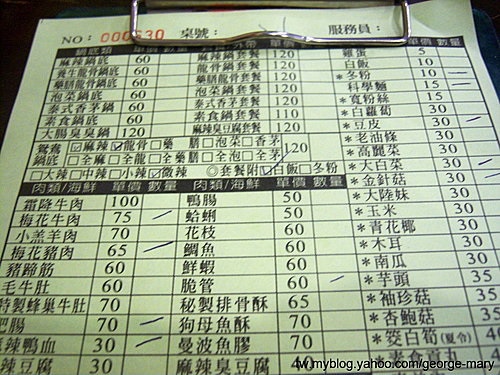 NO: 000530 桌號: 服務員:
鍋底類 單價 數量
麻辣鍋底 60
養生龍骨鍋底 60
藥膳龍骨鍋底 60
泡菜鍋底 60
泰式香茅鍋 60
素食鍋底 60
大腸臭臭鍋 120
鴛鴦鍋底 麻辣 龍骨 藥膳 泡菜 香茅 120
全麻 全龍 全藥膳 全泡 全茅
大辣 中辣 小辣 微辣 套餐附 白飯 冬粉
單價 數量
麻辣鍋套餐 120
龍骨鍋套餐 120
藥膳龍骨套餐 120
泡菜鍋套餐 120
泰式香茅套餐 120
素食鍋套餐 110
麻辣臭豆腐套餐 120
肉類/海鮮 單價 數量
霜降牛肉 100
梅花牛肉 75
小羔羊肉 70
梅花豬肉 65
豬蹄筋 60
毛牛肚 60
特製蜂巢牛肚 70
肥腸 70
麻辣鴨血 30
肉類/海鮮 單價 數量
鴨腸 50
蛤蜊 50
花枝 60
鯛魚 60
鮮蝦 60
脆管 60
秘製排骨酥 65
狗母魚酥 70
曼波魚膠 70
麻辣臭豆腐 40
單價 數量
雞蛋 5
白飯 10
*冬粉 10
科學麵 15
*寬粉絲 15
*白蘿蔔 30
*豆皮 30
*老油條 30
*高麗菜 30
*大白菜 30
*金針菇 30
*大陸妹 30
*玉米 30
*青花椰 30
*木耳 30
*南瓜 30
*芋頭 35
*袖珍菇 35
*杏鮑菇 35
*筊白筍(夏令) 40
*素食貢丸
tw.myblog.yahoo.com/george-mary